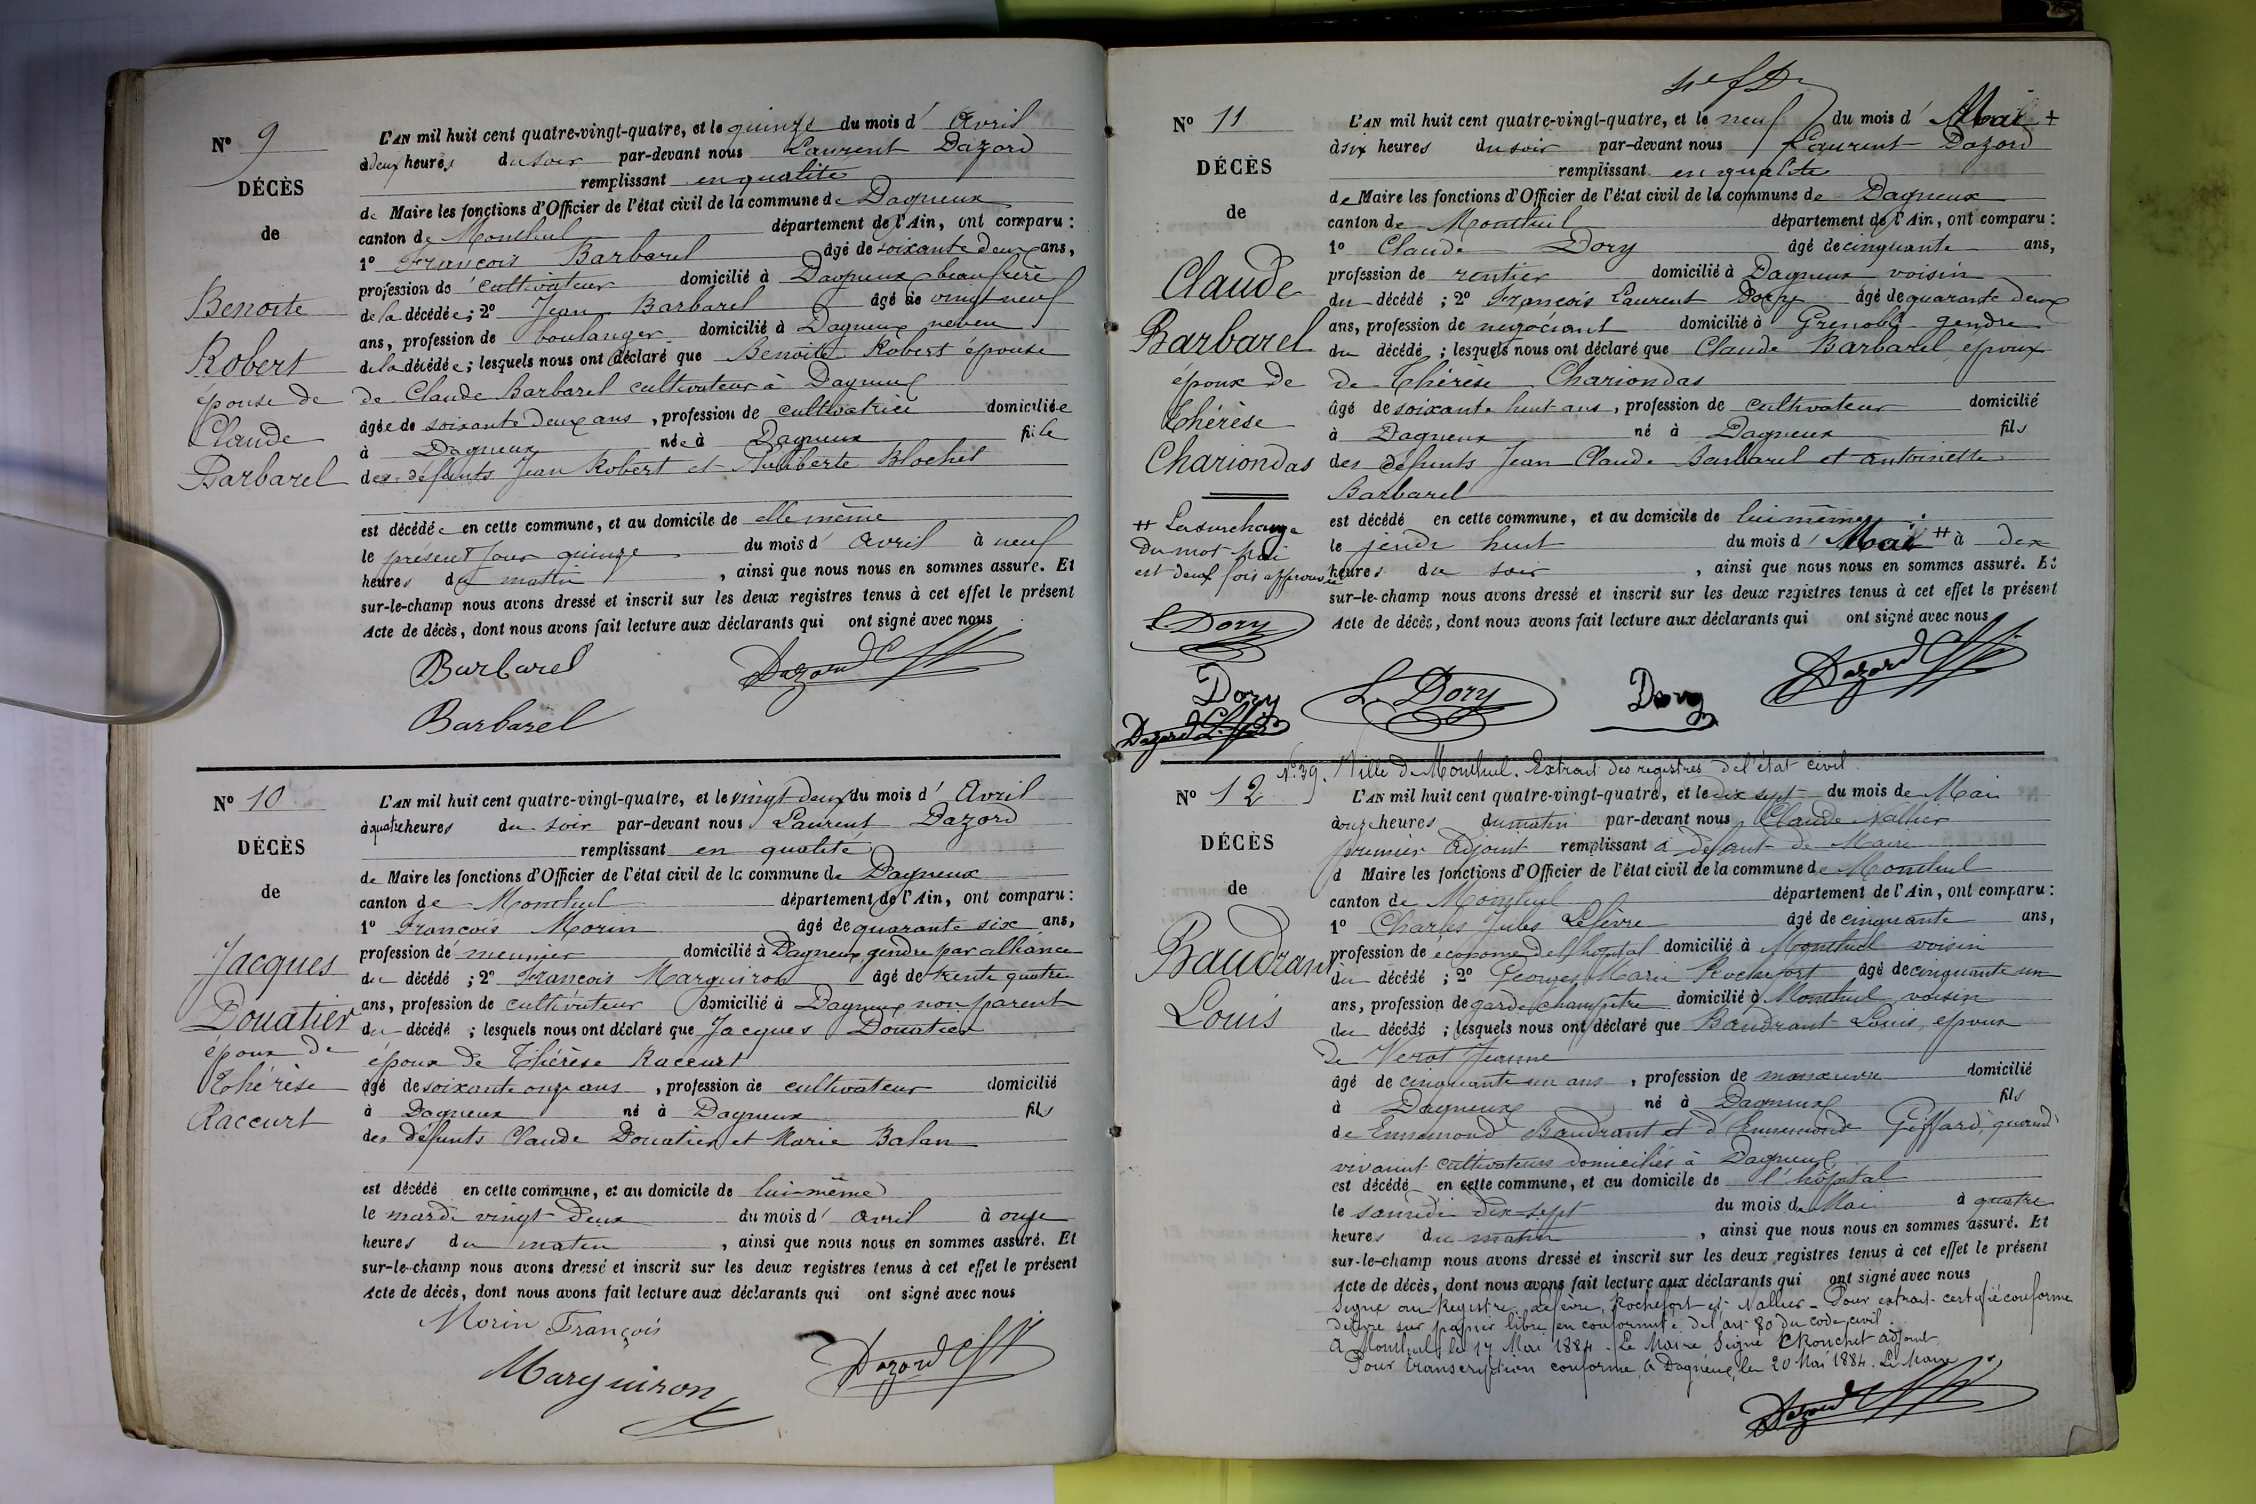 Nº 9
DÉCÈS
de
Benoite
Robert
épouse de
Claude
Barbarel
L'AN mil huit cent quatre-vingt-quatre, et le quinze du mois d' Avril
à deux heures du soir par-devant nous Laurent Dazord
remplissant en qualité
de Maire les fonctions d'Officier de l'état civil de la commune de Dagneux
canton de Montluel département de l'Ain, ont comparu :
1º François Barbarel âgé de soixante deux ans,
profession de cultivateur domicilié à Dagneux beau frère
de la décédée ; 2º Jean Barbarel âgé de vingt neuf
ans, profession de boulanger domicilié à Dagneux neveu
de la décédée ; lesquels nous ont déclaré que Benoite Robert épouse
de Claude Barbarel cultivateur à Dagneux
âgée de soixante deux ans , profession de cultivatrice domiciliée
à Dagneux née à Dagneux fille
des défunts Jean Robert et Philiberte Blochet
est décédée en cette commune, et au domicile de elle même
le présent jour quinze du mois d' Avril à neuf
heures du matin , ainsi que nous nous en sommes assuré. Et
sur-le-champ nous avons dressé et inscrit sur les deux registres tenus à cet effet le présent
Acte de décès, dont nous avons fait lecture aux déclarants qui ont signé avec nous
Barbarel Dazord
Barbarel
Nº 10
DÉCÈS
de
Jacques
Douatier
époux de
Thérèse
Raccurt
L'AN mil huit cent quatre-vingt-quatre, et le vingt deux du mois d' Avril
à quatre heures du soir par-devant nous Laurent Dazord
remplissant en qualité
de Maire les fonctions d'Officier de l'état civil de la commune de Dagneux
canton de Montluel département de l'Ain, ont comparu :
1º François Morin âgé de quarante six ans,
profession de meunier domicilié à Dagneux gendre par alliance
du décédé ; 2º François Marguiron âgé de trente quatre
ans, profession de cultivateur domicilié à Dagneux non parent
du décédé ; lesquels nous ont déclaré que Jacques Douatier
époux de Thérèse Raccurt
âgé de soixante onze ans , profession de cultivateur domicilié
à Dagneux né à Dagneux fils
des défunts Claude Douatier et Marie Balan
est décédé en cette commune, et au domicile de lui-même
le mardi vingt deux du mois d' avril à onze
heures du matin , ainsi que nous nous en sommes assuré. Et
sur-le-champ nous avons dressé et inscrit sur les deux registres tenus à cet effet le présent
Acte de décès, dont nous avons fait lecture aux déclarants qui ont signé avec nous
Morin François
Marguiron Dazord
Nº 11
DÉCÈS
de
Claude
Barbarel
époux de
Thérèse
Chariondas
++ La surcharge
du mot Mai
est deux fois approuvée
L Dory
Dory
Dazord
L'AN mil huit cent quatre-vingt-quatre, et le neuf du mois d' Mai +
à six heures du soir par-devant nous Laurent Dazord
remplissant en qualité
de Maire les fonctions d'Officier de l'état civil de la commune de Dagneux
canton de Montluel département de l'Ain, ont comparu :
1º Claude Dory âgé de cinquante ans,
profession de rentier domicilié à Dagneux voisin
du décédé ; 2º François Laurent Dory âgé de quarante deux
ans, profession de négociant domicilié à Grenoble gendre
du décédé ; lesquels nous ont déclaré que Claude Barbarel époux
de Thérèse Chariondas
âgé de soixante huit ans , profession de cultivateur domicilié
à Dagneux né à Dagneux fils
des défunts Jean Claude Barbarel et Antoinette
Barbarel
est décédé en cette commune, et au domicile de lui même
le jeudi huit du mois d' Mai ++ à dix
heures du soir , ainsi que nous nous en sommes assuré. Et
sur-le-champ nous avons dressé et inscrit sur les deux registres tenus à cet effet le présent
Acte de décès, dont nous avons fait lecture aux déclarants qui ont signé avec nous
L. Dory Dory Dazord
Nº 39. Ville de Montluel. Extrait des registres de l'état civil
Nº 12
DÉCÈS
de
Baudrant
Louis
L'AN mil huit cent quatre-vingt-quatre, et le dix sept du mois de Mai
à onze heures du matin par-devant nous Claude Nallier
premier Adjoint remplissant à défaut de Maire
d Maire les fonctions d'Officier de l'état civil de la commune de Montluel
canton de Montluel département de l'Ain, ont comparu :
1º Charles Jules Lefèvre âgé de cinquante ans,
profession de économe de l'hôpital domicilié à Montluel voisin
du décédé ; 2º Georges Marie Rochefort âgé de cinquante un
ans, profession de garde champêtre domicilié à Montluel voisin
du décédé ; lesquels nous ont déclaré que Baudrant Louis, époux
de Verot Jeanne
âgé de cinquante un ans , profession de manoeuvre domicilié
à Dagneux né à Dagneux fils
de Ennemond Baudrant et d'Ennemonde Giffard, quand
vivaient cultivateurs domiciliés à Dagneux
est décédé en cette commune, et au domicile de l'hôpital
le samedi dix-sept du mois de Mai à quatre
heures du matin , ainsi que nous nous en sommes assuré. Et
sur-le-champ nous avons dressé et inscrit sur les deux registres tenus à cet effet le présent
Acte de décès, dont nous avons fait lecture aux déclarants qui ont signé avec nous
Signé au Registre Lefèvre, Rochefort et Nallier - Pour extrait certifié conforme
délivré sur papier libre en conformité de l'art 80 du code civil.
A Montluel le 17 Mai 1884. Le Maire Signé Ronchet adjoint
Pour transcription conforme, à Dagneux, le 20 Mai 1884. Le Maire
Dazord